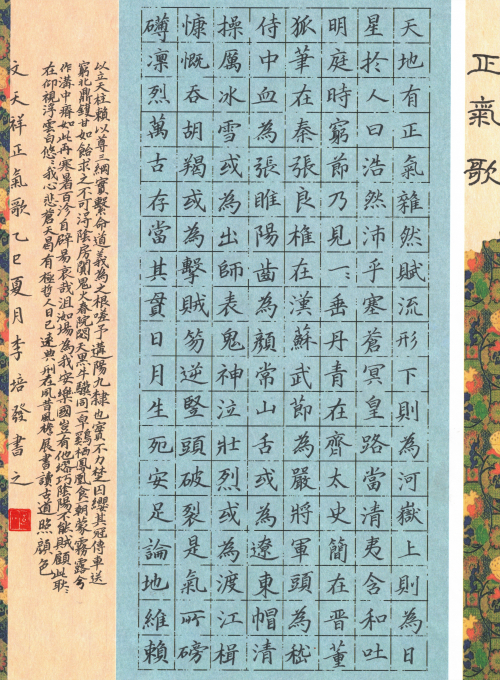 正氣歌
天地有正氣雜然賦流形下則為河嶽上則為日
星於人曰浩然沛乎塞蒼冥皇路當清夷含和吐
明庭時窮節乃見一、垂丹青在齊太史簡在晉董
狐筆在秦張良椎在漢蘇武節為嚴將軍頭為嵇
侍中血為張睢陽齒為顏常山舌或為遼東帽清
操厲冰雪或為出師表鬼神泣壯烈或為渡江楫
慷慨吞胡羯或為擊賊笏逆豎頭破裂是氣所磅
礡凜烈萬古存當其貫日月生死安足論地維賴
以立天柱賴以尊三綱實繫命道義為之根嗟予遘陽九隸也實不力楚囚纓其冠傳車送
窮北鼎鑊甘如飴求之不可得陰房闃鬼火春院閟天黑牛驥同一皁鷄栖鳳凰食一朝蒙霧露分
作溝中瘠如此再寒暑百沴自辟易哀哉沮洳場為我安樂國豈有他繆巧陰陽不能賊顧此耿、
在仰視浮雲白悠、我心悲蒼天曷有極哲人日已遠典刑在夙昔風檐展書讀古道照顏色
文天祥正氣歌乙巳夏月李培發書之